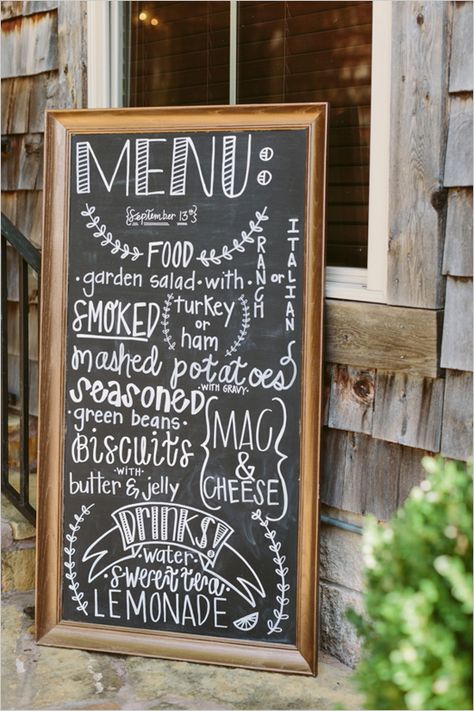 MENU:
{September 13th}
FOOD
·garden salad·with·
RANCH
or
ITALIAN
SMOKED
turkey
or
ham
mashed potatoes
·WITH GRAVY·
seasoned
·green beans·
BISCUITS
·WITH·
butter & jelly
{MAC
&
CHEESE}
DRINKS!
·water·
·sweet tea·
LEMONADE